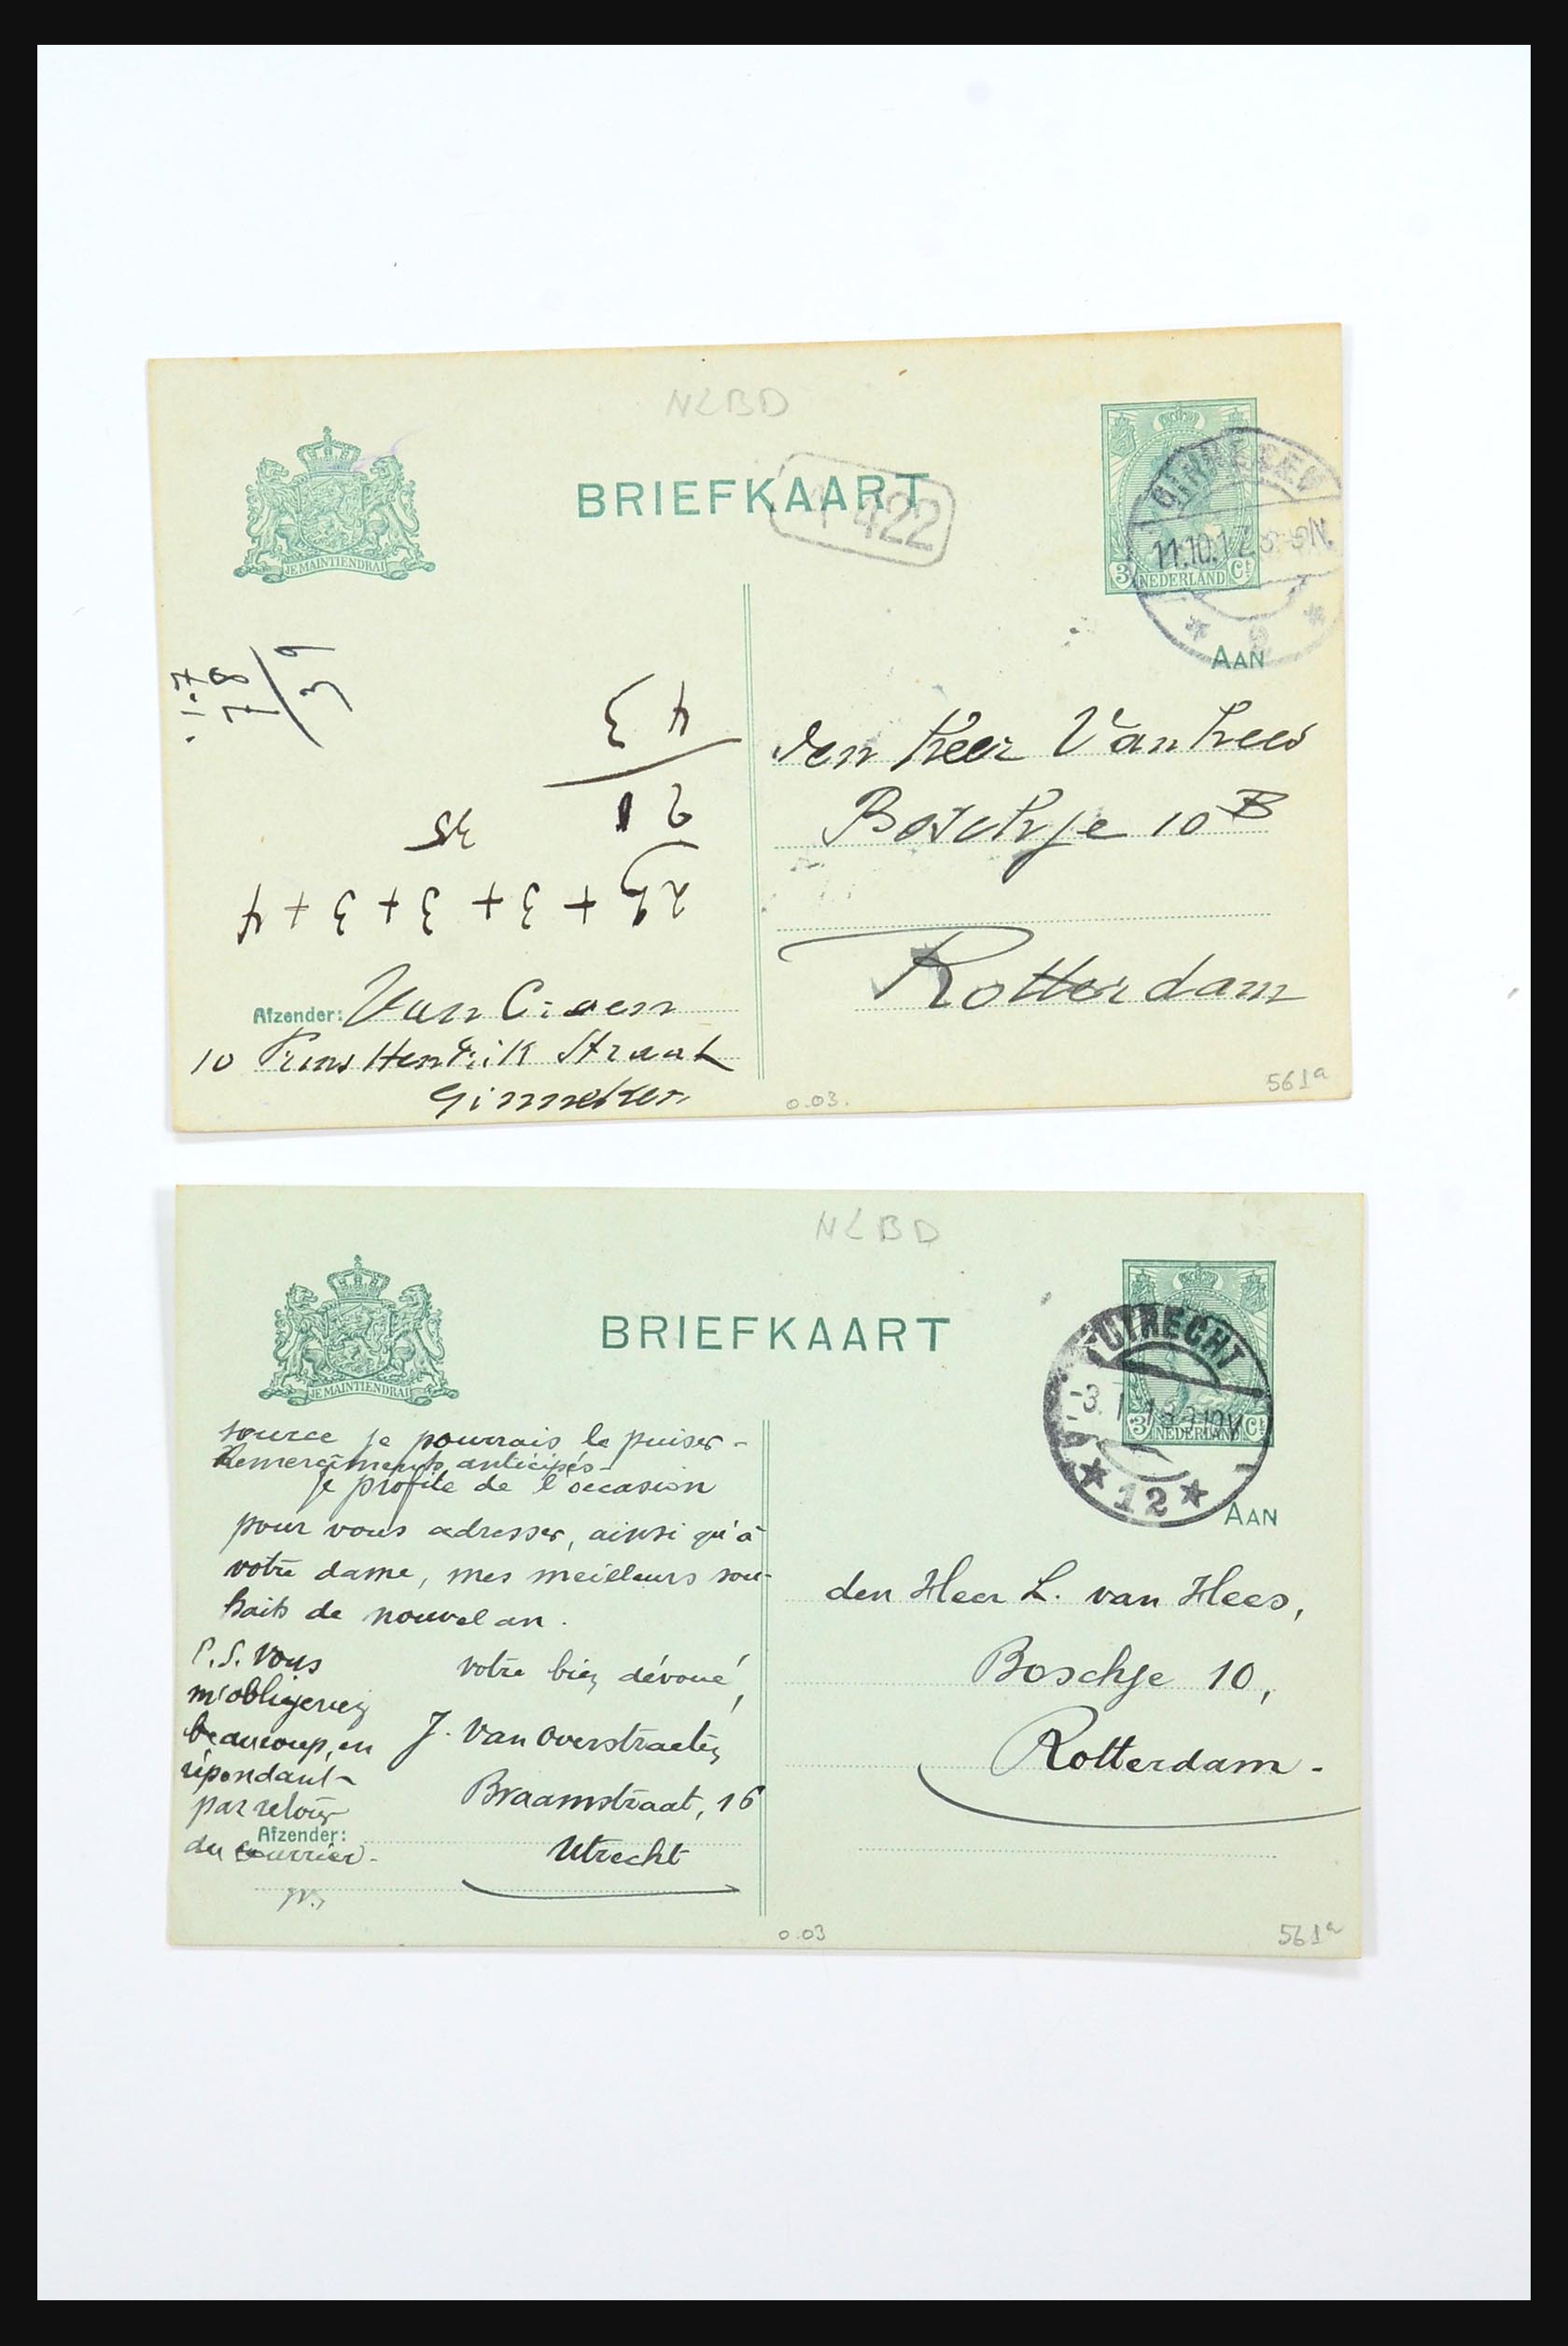 NLBD
BRIEFKAART
422
JE MAINTIENDRAI
GINNEKEN
11.10.17
3 NEDERLAND Ct
AAN
den Heer Van Hees
Boschje 10 B
Rotterdam
17
78
39
43
91
25 + 3 + 3 + 3 + 4
Afzender: Van
10 Prins Hendrik Straat
Ginneken
0.03.
561a
NLBD
BRIEFKAART
JE MAINTIENDRAI
UTRECHT
-3.
12
3 NEDERLAND Ct
AAN
source je pourrais le puiser -
Remerciments anticipés -
je profite de l'occasion
pour vous adresser, ainsi qu'à
votre dame, mes meilleurs sou-
haits de nouvel an.
votre bien dévoué,
J. Van Overstraeten
Braamstraat, 16
Utrecht
P.S. Vous
m'obligeriez
beaucoup, en
répondant
par retour
du courrier -
Afzender:
den Heer L. van Hees,
Boschje 10,
Rotterdam -
0.03
561a